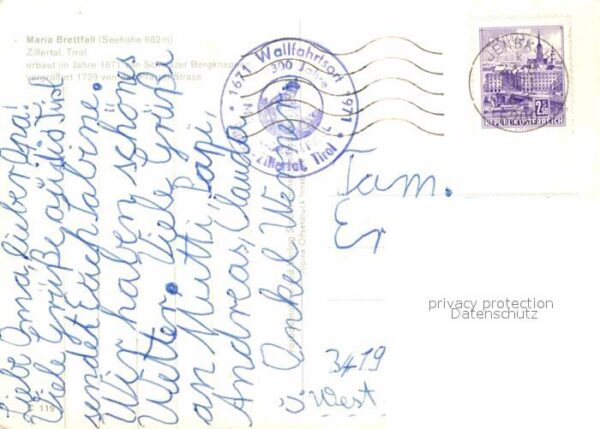 Maria Brettfall (Seehöhe 682m)
Zillertal, Tirol
erbaut im Jahre 1671 von Schwazer Bergknappen
vergrößert 1729 von
1671 Wallfahrtsort 1971
300 Jahre
Zillertal, Tirol
JENBACH
2.50
REPUBLIK ÖSTERREICH
Liebe Oma, lieber Opa!
Viele Grüße aus Tirol
sendet Euch Sabine.
Wir haben schönes
Wetter. Viele Grüße
an Mutti, Papi,
Andreas, Claudia
Onkel Werner.
Fam.
Er
privacy protection
Datenschutz
3419
West
119